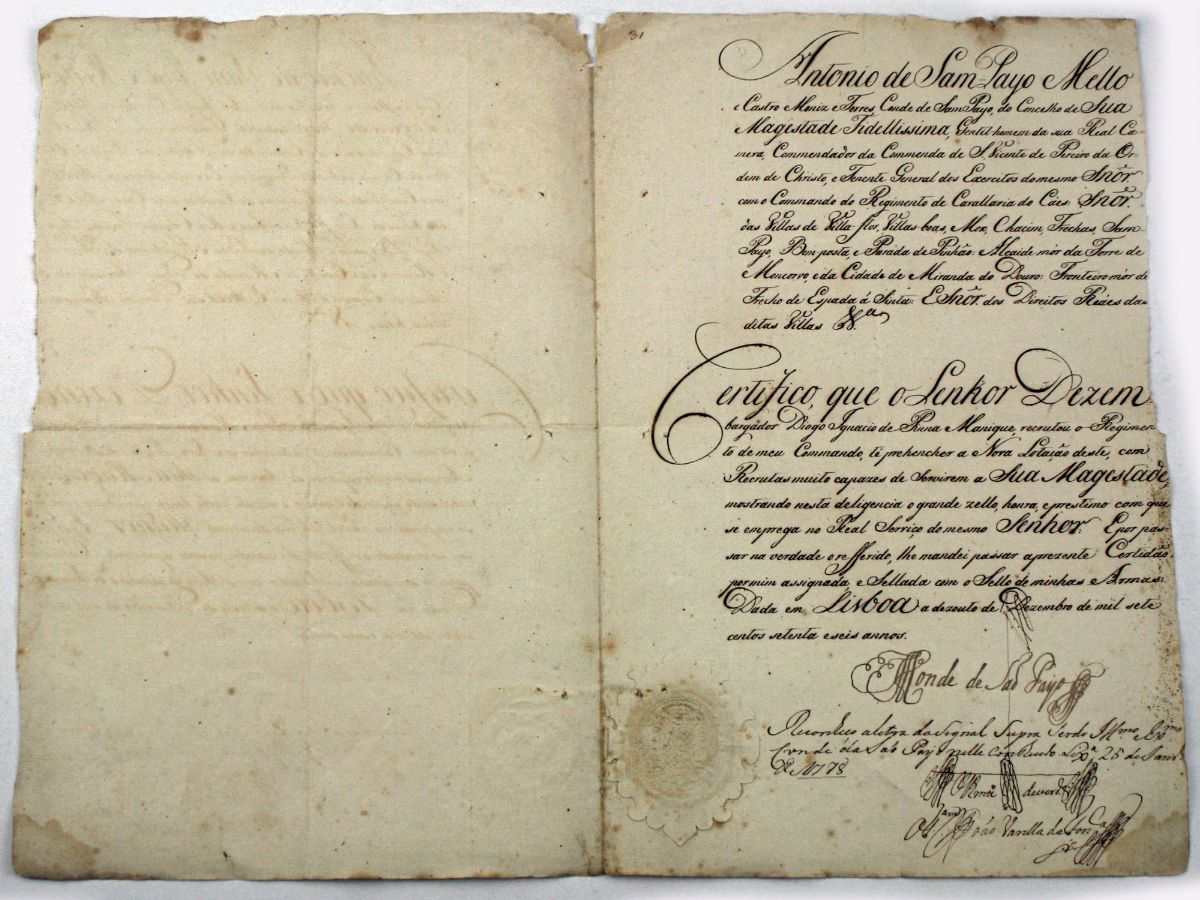 31
Antonio de Sam Payo Mello
e Castro Moniz e Torres, Conde de Sam Payo, do Concelho de Sua
Magestade Fidellissima, Gentil-homem da sua Real Ca-
mera, Commendador da Commenda de S. Vicente de Pereiro da Or-
dem de Christo, e Tenente General dos Exercitos do mesmo Snõr
com o Commando do Regimento de Cavallaria do Cáes: Snõr.
das Villas de Villa-flor, Villas-boas, Moz, Chacim, Frechas, Sam
Payo, Bem posta, e Parada de Pinhão: Alcaide mór da Torre de
Moncorvo, e da Cidade de Miranda do Douro: Fronteiro mór de
Frecho de Espada á Sinta: E Snõr dos Direitos Reáes da-
ditas Villas &.ª
Certifico, que o Senhor Dezem-
bargador Diogo Ignacio de Pinna Manique, recrutou o Regimen-
to de meu Commando, té prehencher a Nova Lotação deste, com
Recrutas muito capazes de Servirem a Sua Magestade,
mostrando nesta deligencia o grande zello, honra, e prestimo com que
se emprega no Real Serviço do mesmo Senhor: E por pas-
sar na verdade o refferido, lhe mandei passar a prezente Certidão
por mim assignada e Sellada com o Sello de minhas Armas:
Dada em Lisboa a dezouto de Dezembro de mil sete
centos setenta e seis annos.
Conde de São Payo
Reconheco a letra do Signal Supra Ser do Illmo Exmo
Conde de Sao Payo nelle contheudo Lxª 25 de Janrº
de 1778
de verd.e
João Varella da Fonca